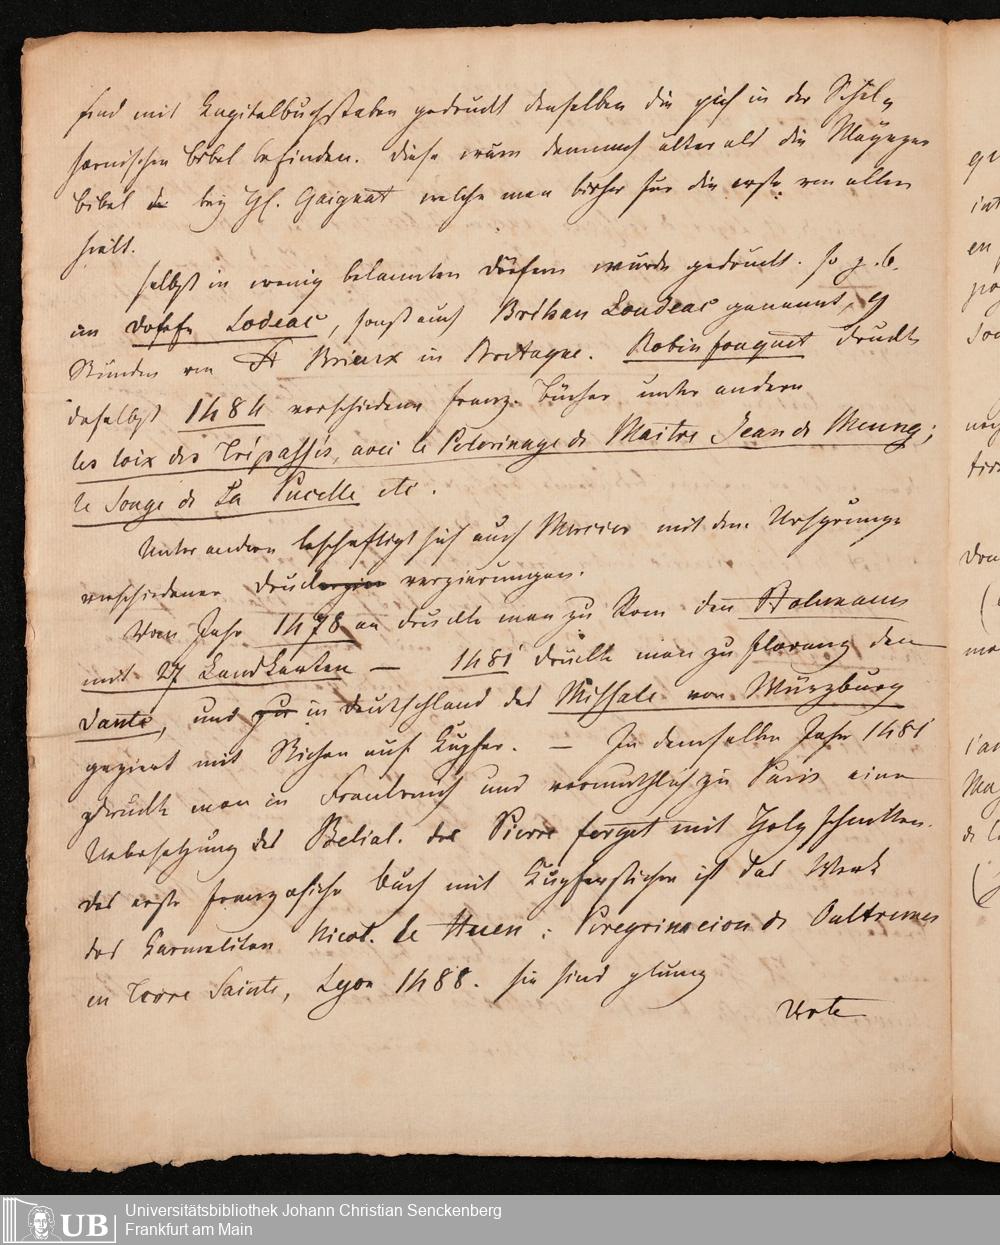 sind mit Kapitalbuchstaben gedruckt denselben die sich in der Schel-
hornischen bibel befinden. diese wäre demnach älter als die Maynzer
bibel bey H. Gaignat welche man bisher für die erste von allen
hielt.
selbst in wenig bekannten Dörfern wurde gedruckt. so z. b.
im Dorfe Lodeac, sonst auch Bréhan Loudeac genannt, 9
Stunden von St Brieux in Bretagne. Robin fouquet druckte
daselbst 1484 verschiedene franz. bücher unter andern
les loix des Trépassés, avec le Pelerinage de Maitre Jean de Meung;
le Songe de La Pucelle etc.
Unter andern beschäftigt sich auch Mercier mit dem Ursprunge
verschiedener Druckverzierungen.
Vom Jahr 1478 an druckte man zu Rom den Ptolemaeus
mit 27 Landkarten — 1481 druckte man zu florenz den
Dante, und in Deutschland das Missale von Würzburg
geziert mit Stichen auf Kupfer. — In demselben Jahr 1481
druckte man in Frankreich und vermuthlich zu Paris eine
Uebersetzung des Belial. des Pierre ferget mit Holzschnitten.
das erste französische buch mit Kupferstichen ist das Werk
des Karmeliten Nicol. le Huen: Peregrinacion de Oultremer
en Terre Sainte, Lyon 1488. sie sind genug